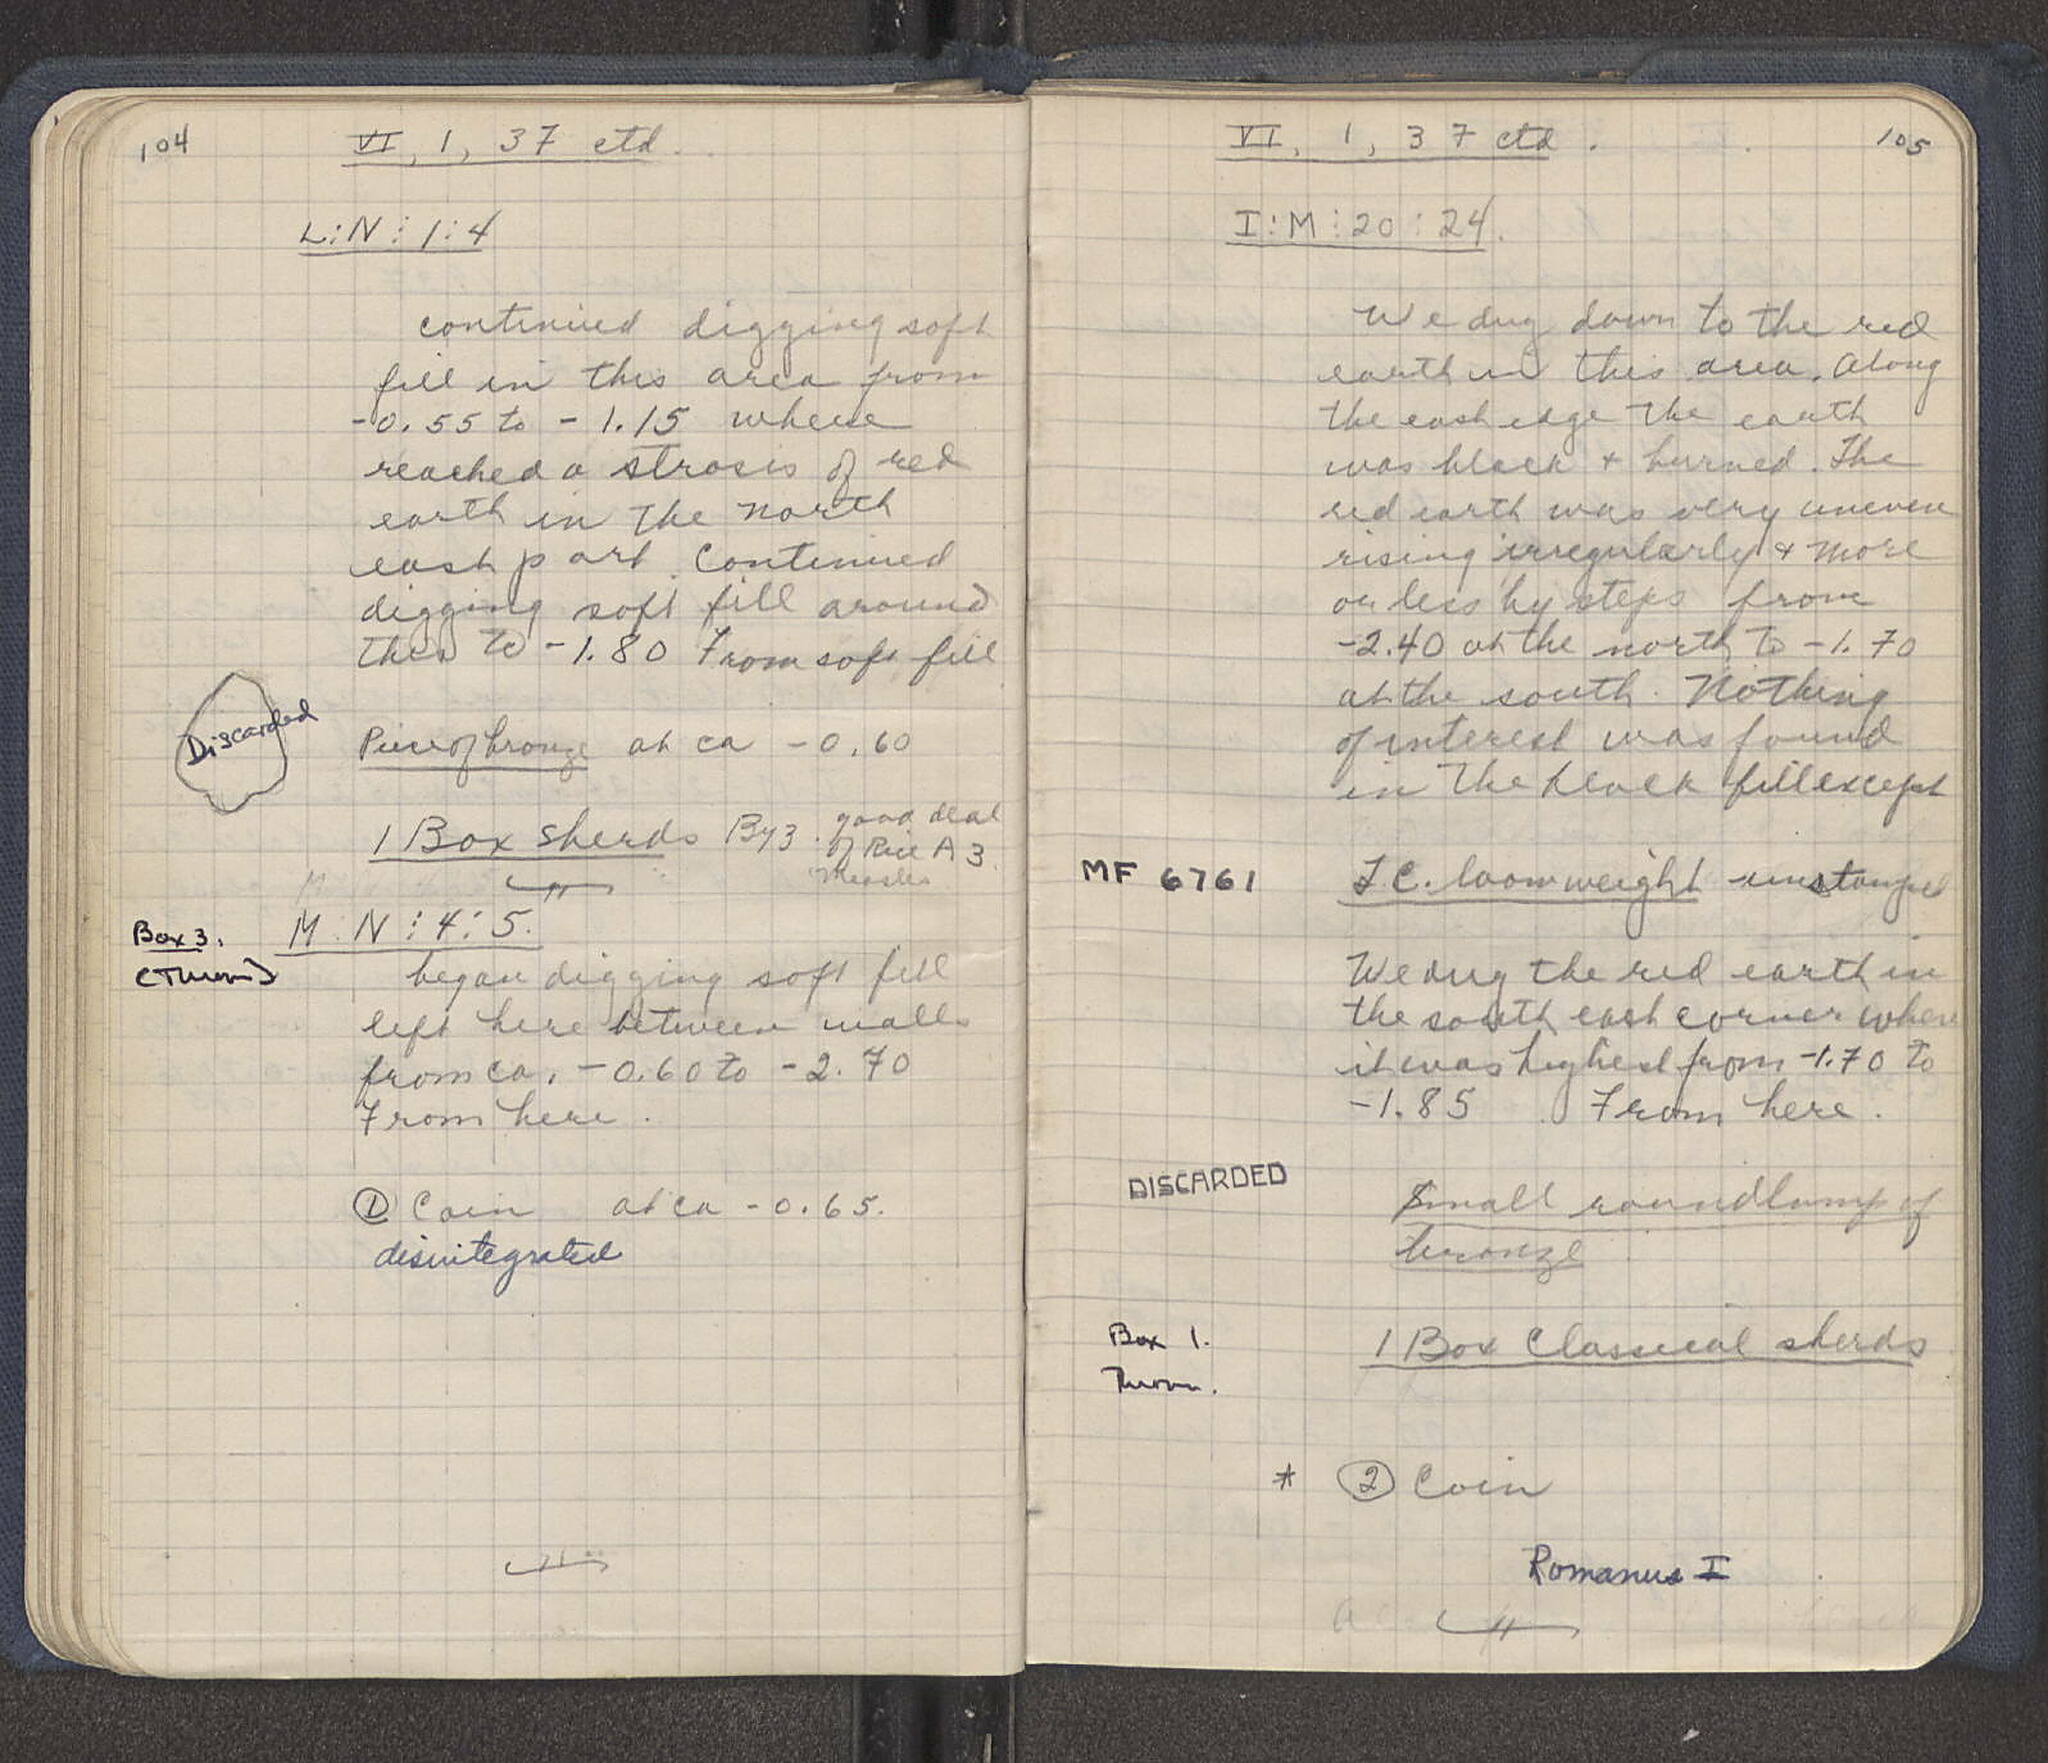 104
VI, 1, 37 ctd.
L:N⋮1:4
continued digging soft
fill in this area from
-0.55 to -1.15 where
reached a strosis of red
earth in the north
east part. Continued
digging soft fill around
this to -1.80 From soft fill
Discarded
Piece of bronze at ca -0.60
1 Box sherds By3. good deal
of Rice A 3.
Measles
Box 3.
(Thrown)
M:N⋮4:5.
began digging soft fill
left here between walls
from ca. -0.60 to -2.70
From here.
① Coin at ca -0.65.
disintegrated
VI, 1, 37 ctd.
105
I:M⋮20:24.
We dug down to the red
earth in this area. Along
the east edge the earth
was black + burned. The
red earth was very uneven
rising irregularly + more
or less by steps from
-2.40 at the north to -1.70
at the south. Nothing
of interest was found
in the black fill except
MF 6761
T.C. loomweight unstamped
We dug the red earth in
the south east corner where
it was highest from -1.70 to
-1.85. From here.
DISCARDED
Small round lump of
bronze
Box 1.
Thrown.
1 Box Classical sherds
* ② Coin
Romanus I